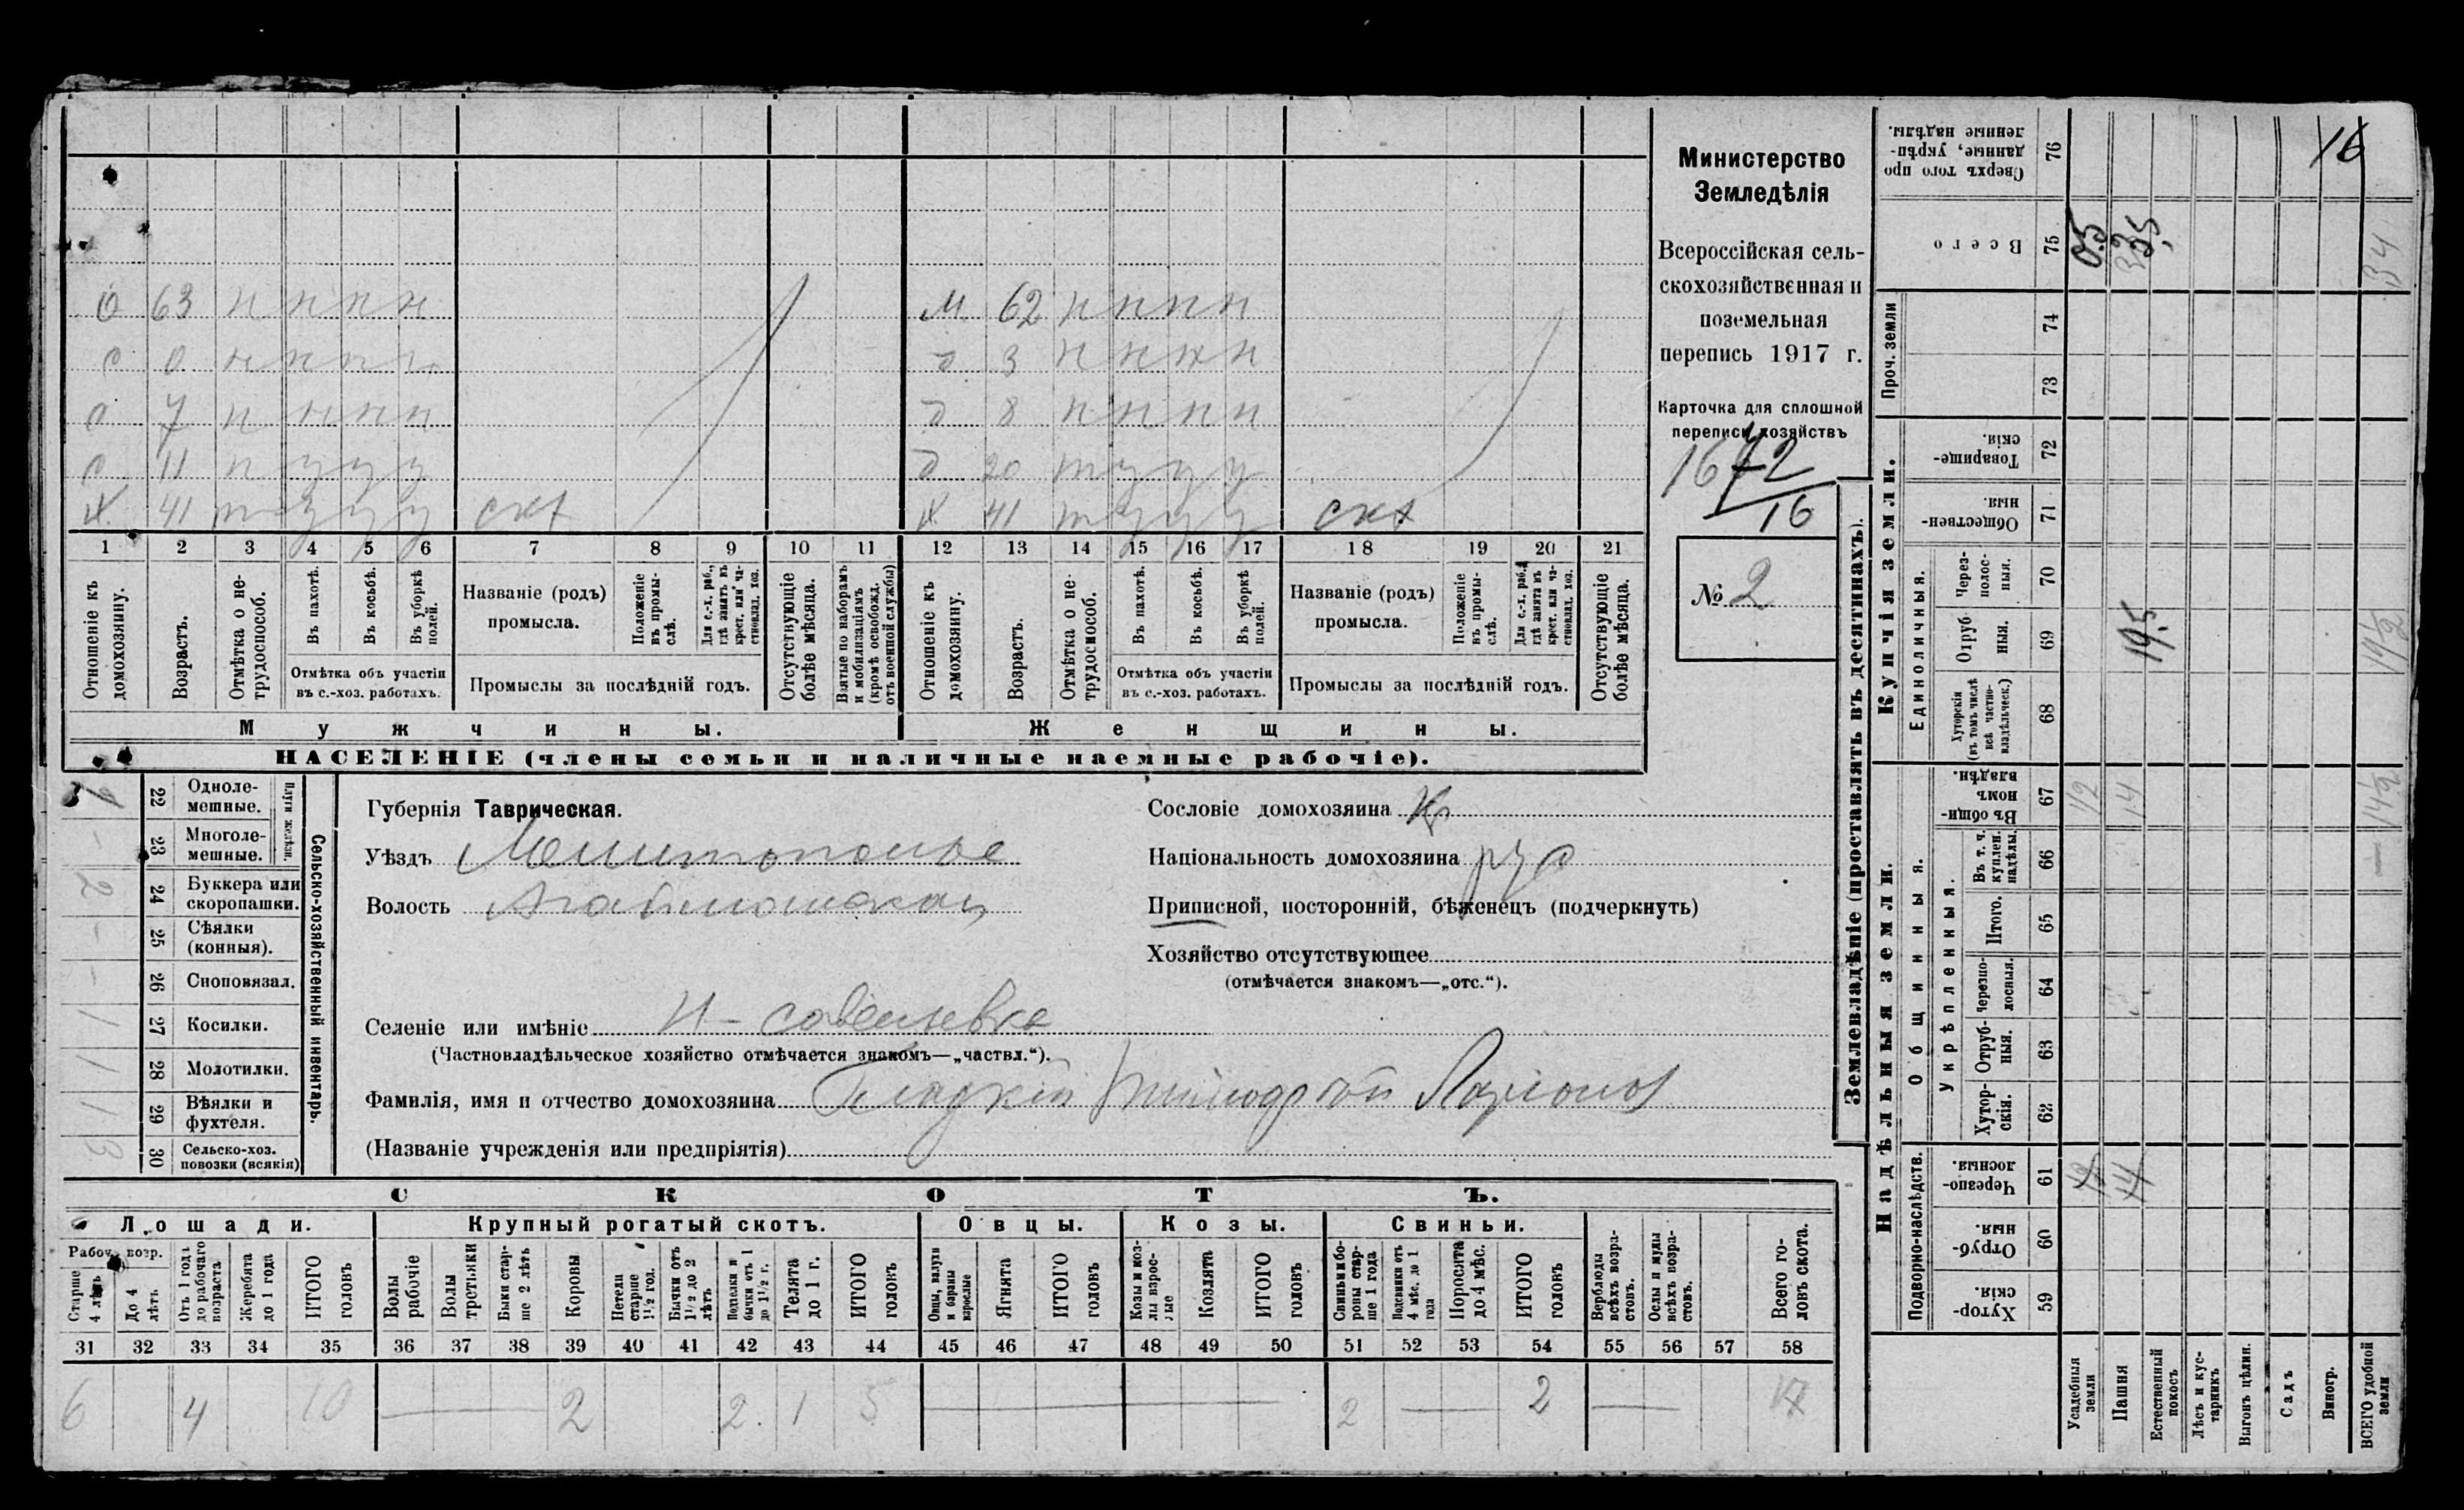 16
Министерство
Земледѣлія
Всероссійская сель-
скохозяйственная и
поземельная
перепись 1917 г.
Карточка для сплошной
переписи хозяйствъ
72
16
№ 2
о 63 н н н н
с 0 н н н н
с 7 н н н н
с 11 п у у у
х 41 т у у у скх
м 62 н н н н
д 3 н н н н
д 8 н н н н
д 20 т у у у
х 41 т у у у скх
1 2 3 4 5 6 7 8 9 10 11 12 13 14 15 16 17 18 19 20 21
Отношеніе къ домохозяину.
Возрастъ.
Отмѣтка о не-трудоспособ.
Въ пахотѣ.
Въ косьбѣ.
Въ уборкѣ полей.
Отмѣтка объ участіи
въ с.-хоз. работахъ.
Названіе (родъ)
промысла.
Положеніе въ промы-слѣ.
Для с.-х. раб., гдѣ занятъ въ крест. или ча-стновлад. хоз.
Промыслы за послѣдній годъ.
Отсутствующіе болѣе мѣсяца.
Взятые по наборамъ и мобилизаціямъ (кромѣ освобожд. отъ военной службы)
Отношеніе къ домохозяину.
Возрастъ.
Отмѣтка о не-трудоспособ.
Въ пахотѣ.
Въ косьбѣ.
Въ уборкѣ полей.
Отмѣтка объ участіи
въ с.-хоз. работахъ.
Названіе (родъ)
промысла.
Положеніе въ промы-слѣ.
Для с.-х. раб., гдѣ занята въ крест. или ча-стновлад. хоз.
Промыслы за послѣдній годъ.
Отсутствующіе болѣе мѣсяца.
Мужчины. Женщины.
НАСЕЛЕНІЕ (члены семьи и наличные наемные рабочіе).
Сельско-хозяйственный инвентарь.
Плуги желѣзн.
22 Одноле-мешные. 1
23 Многоле-мешные. -
24 Буккера или скоропашки. 2
25 Сѣялки (конныя). -
26 Сноповязал. -
27 Косилки. 1
28 Молотилки. 1
29 Вѣялки и фухтеля. 1
30 Сельско-хоз. повозки (всякія) 3
Губернія Таврическая.
Уѣздъ Мелитопольс
Волость
Селеніе или имѣніе Н-савельевка
(Частновладѣльческое хозяйство отмѣчается знакомъ—„частвл.“).
Фамилія, имя и отчество домохозяина Гладкій
(Названіе учрежденія или предпріятія)
Сословіе домохозяина Кр
Національность домохозяина рус
Приписной, посторонній, бѣженецъ (подчеркнуть)
Хозяйство отсутствующее
(отмѣчается знакомъ—„отс.“).
СКОТЪ.
Лошади. Крупный рогатый скотъ. Овцы. Козы. Свиньи.
Рабоч. возр.
Старше 4 лѣтъ
До 4 лѣтъ
Отъ 1 года до рабочаго возраста
Жеребята до 1 года
ИТОГО головъ
Волы рабочіе
Волы третьяки
Быки стар-ше 2 лѣтъ
Коровы
Нетели старше 1½ год.
Бычки отъ 1½ до 2 лѣтъ
Подтелки и бычки отъ 1 до 1½ г.
Телята до 1 г.
ИТОГО головъ
Овцы, валухи и бараны взрослые
Ягнята
ИТОГО головъ
Козы и коз-лы взрос-лые
Козлята
ИТОГО головъ
Свиньи и бо-ровы стар-ше 1 года
Подсвинки отъ 4 мѣс. до 1 года
Поросята до 4 мѣс.
ИТОГО головъ
Верблюды всѣхъ возра-стовъ.
Ослы и мулы всѣхъ возра-стовъ.
Всего го-ловъ скота.
31 32 33 34 35 36 37 38 39 40 41 42 43 44 45 46 47 48 49 50 51 52 53 54 55 56 57 58
6 4 10 2 2 1 5 2 2 17
Землевладѣніе (проставлять въ десятинахъ).
Надѣльныя земли. Купчія земли. Проч. земли
Подворно-наслѣдств.
Общинныя.
Укрѣпленныя.
Единоличныя.
Сверхъ того про данные, укрѣп-ленные надѣлы. 76
Всего 75 0,5 33,5 34
74
73
Товарище-скія. 72
Обществен-ныя. 71
Через-полос-ныя. 70
Отруб ныя. 69 19,5 19½
Хуторскія (въ томъ числѣ всѣ частно-владѣльческ.) 68
Въ общи-номъ владѣн. 67 1/2 14 14½
Въ т. ч. куплен. надѣлы. 66
Итого. 65
Черезпо-лосныя. 64
Отруб-ныя. 63
Хутор-скія. 62
Черезпо-лосныя. 61
Отруб-ныя. 60
Хутор-скія. 59
Усадебныя земли
Пашня
Естественный покосъ
Лѣсъ и кус-тарникъ
Выгонъ цѣлин.
Садъ
Виногр.
ВСЕГО удобной земли